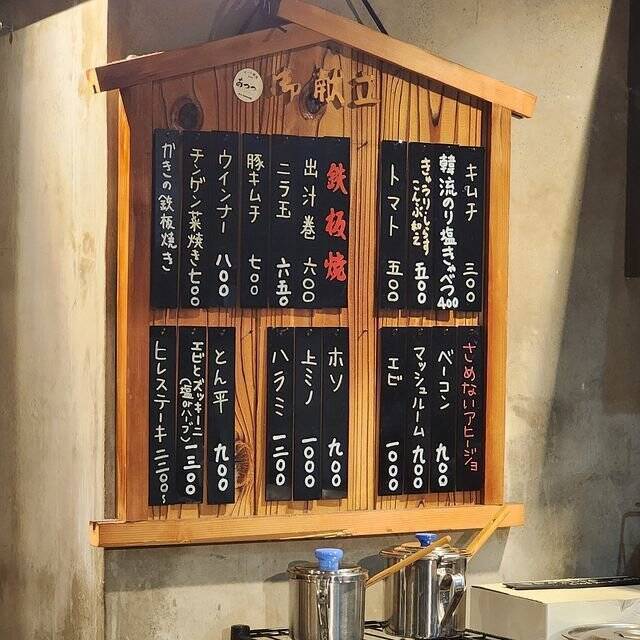 御献立
キムチ 三〇〇
韓流のり塩きゃべつ 400
きゅうりとしらす
こんぶ和え 五〇〇
トマト 五〇〇
鉄板焼
出汁巻 六〇〇
ニラ玉 六五〇
豚キムチ 七〇〇
ウインナー 八〇〇
チンゲン菜焼き 七〇〇
かきの鉄板焼き
さめないアヒージョ
ベーコン 九〇〇
マッシュルーム 九〇〇
エビ 一〇〇〇
ホソ 九〇〇
上ミノ 一〇〇〇
ハラミ 一三〇〇
とん平 九〇〇
エビとズッキーニ
(塩orハーブ) 一三〇〇
ヒレステーキ 二二〇〇〜